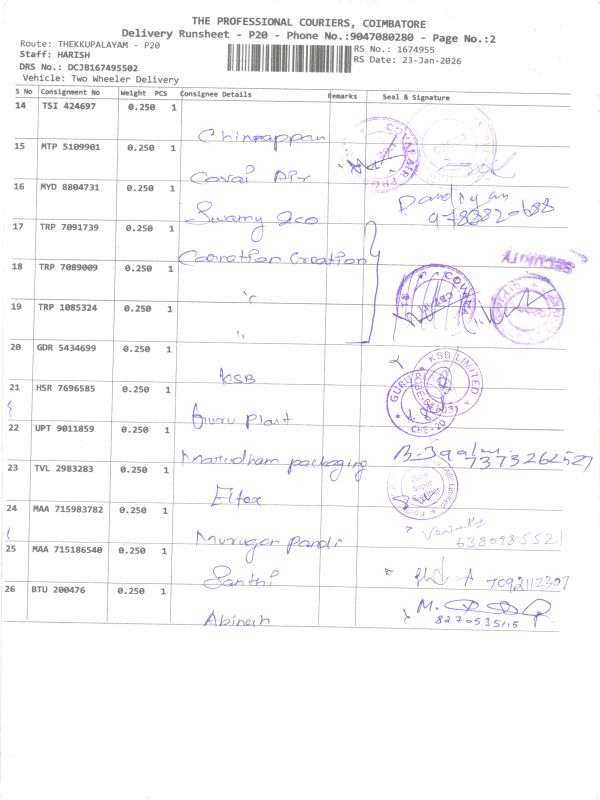 THE PROFESSIONAL COURIERS, COIMBATORE
Delivery Runsheet - P20 - Phone No.:9047080280 - Page No.:2
Route: THEKKUPALAYAM - P20
RS No.: 1674955
Staff: HARISH
RS Date: 23-Jan-2026
DRS No.: DCJB167495502
Vehicle: Two Wheeler Delivery
S No Consignment No Weight PCS Consignee Details Remarks Seal & Signature
14 TSI 424697 0.250 1
Chinnappan
15 MTP 5109901 0.250 1
Covai Air
16 MYD 8804731 0.250 1
Swamy &co
17 TRP 7091739 0.250 1
Cooration Creation
18 TRP 7089009 0.250 1
"
19 TRP 1085324 0.250 1
"
20 GDR 5434699 0.250 1
KSB
KSD LIMITED
21 HSR 7696585 0.250 1
Guru Plant
GURU
22 UPT 9011859 0.250 1
Marudham packaging
7373262527
23 TVL 2983283 0.250 1
Elfex
24 MAA 715983782 0.250 1
Murugan Pandi
6380985521
25 MAA 715186540 0.250 1
Santhi
7092112307
26 BTU 200476 0.250 1
Abinesh
M.
8270535115